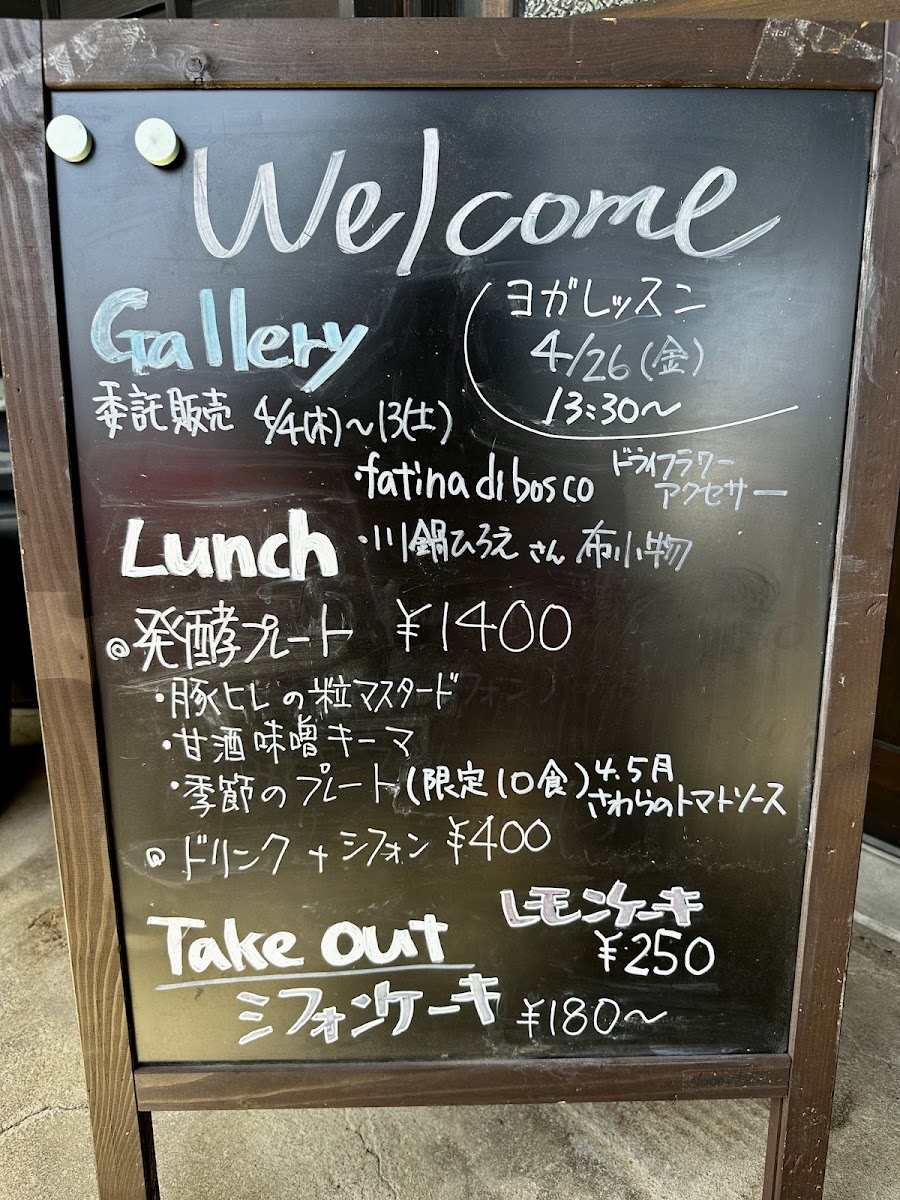 Welcome
Gallery
委託販売 4/4(木)～13(土)
ヨガレッスン
4/26(金)
13:30～
・fatina di bosco ドライフラワー
アクセサー
・川鍋ひろえさん 布小物
Lunch
◎発酵プレート ¥1400
・豚ヒレの粒マスタード
・甘酒味噌キーマ
・季節のプレート(限定10食)4.5月
さわらのトマトソース
◎ドリンク+シフォン ¥400
Take out
レモンケーキ
¥250
シフォンケーキ ¥180～